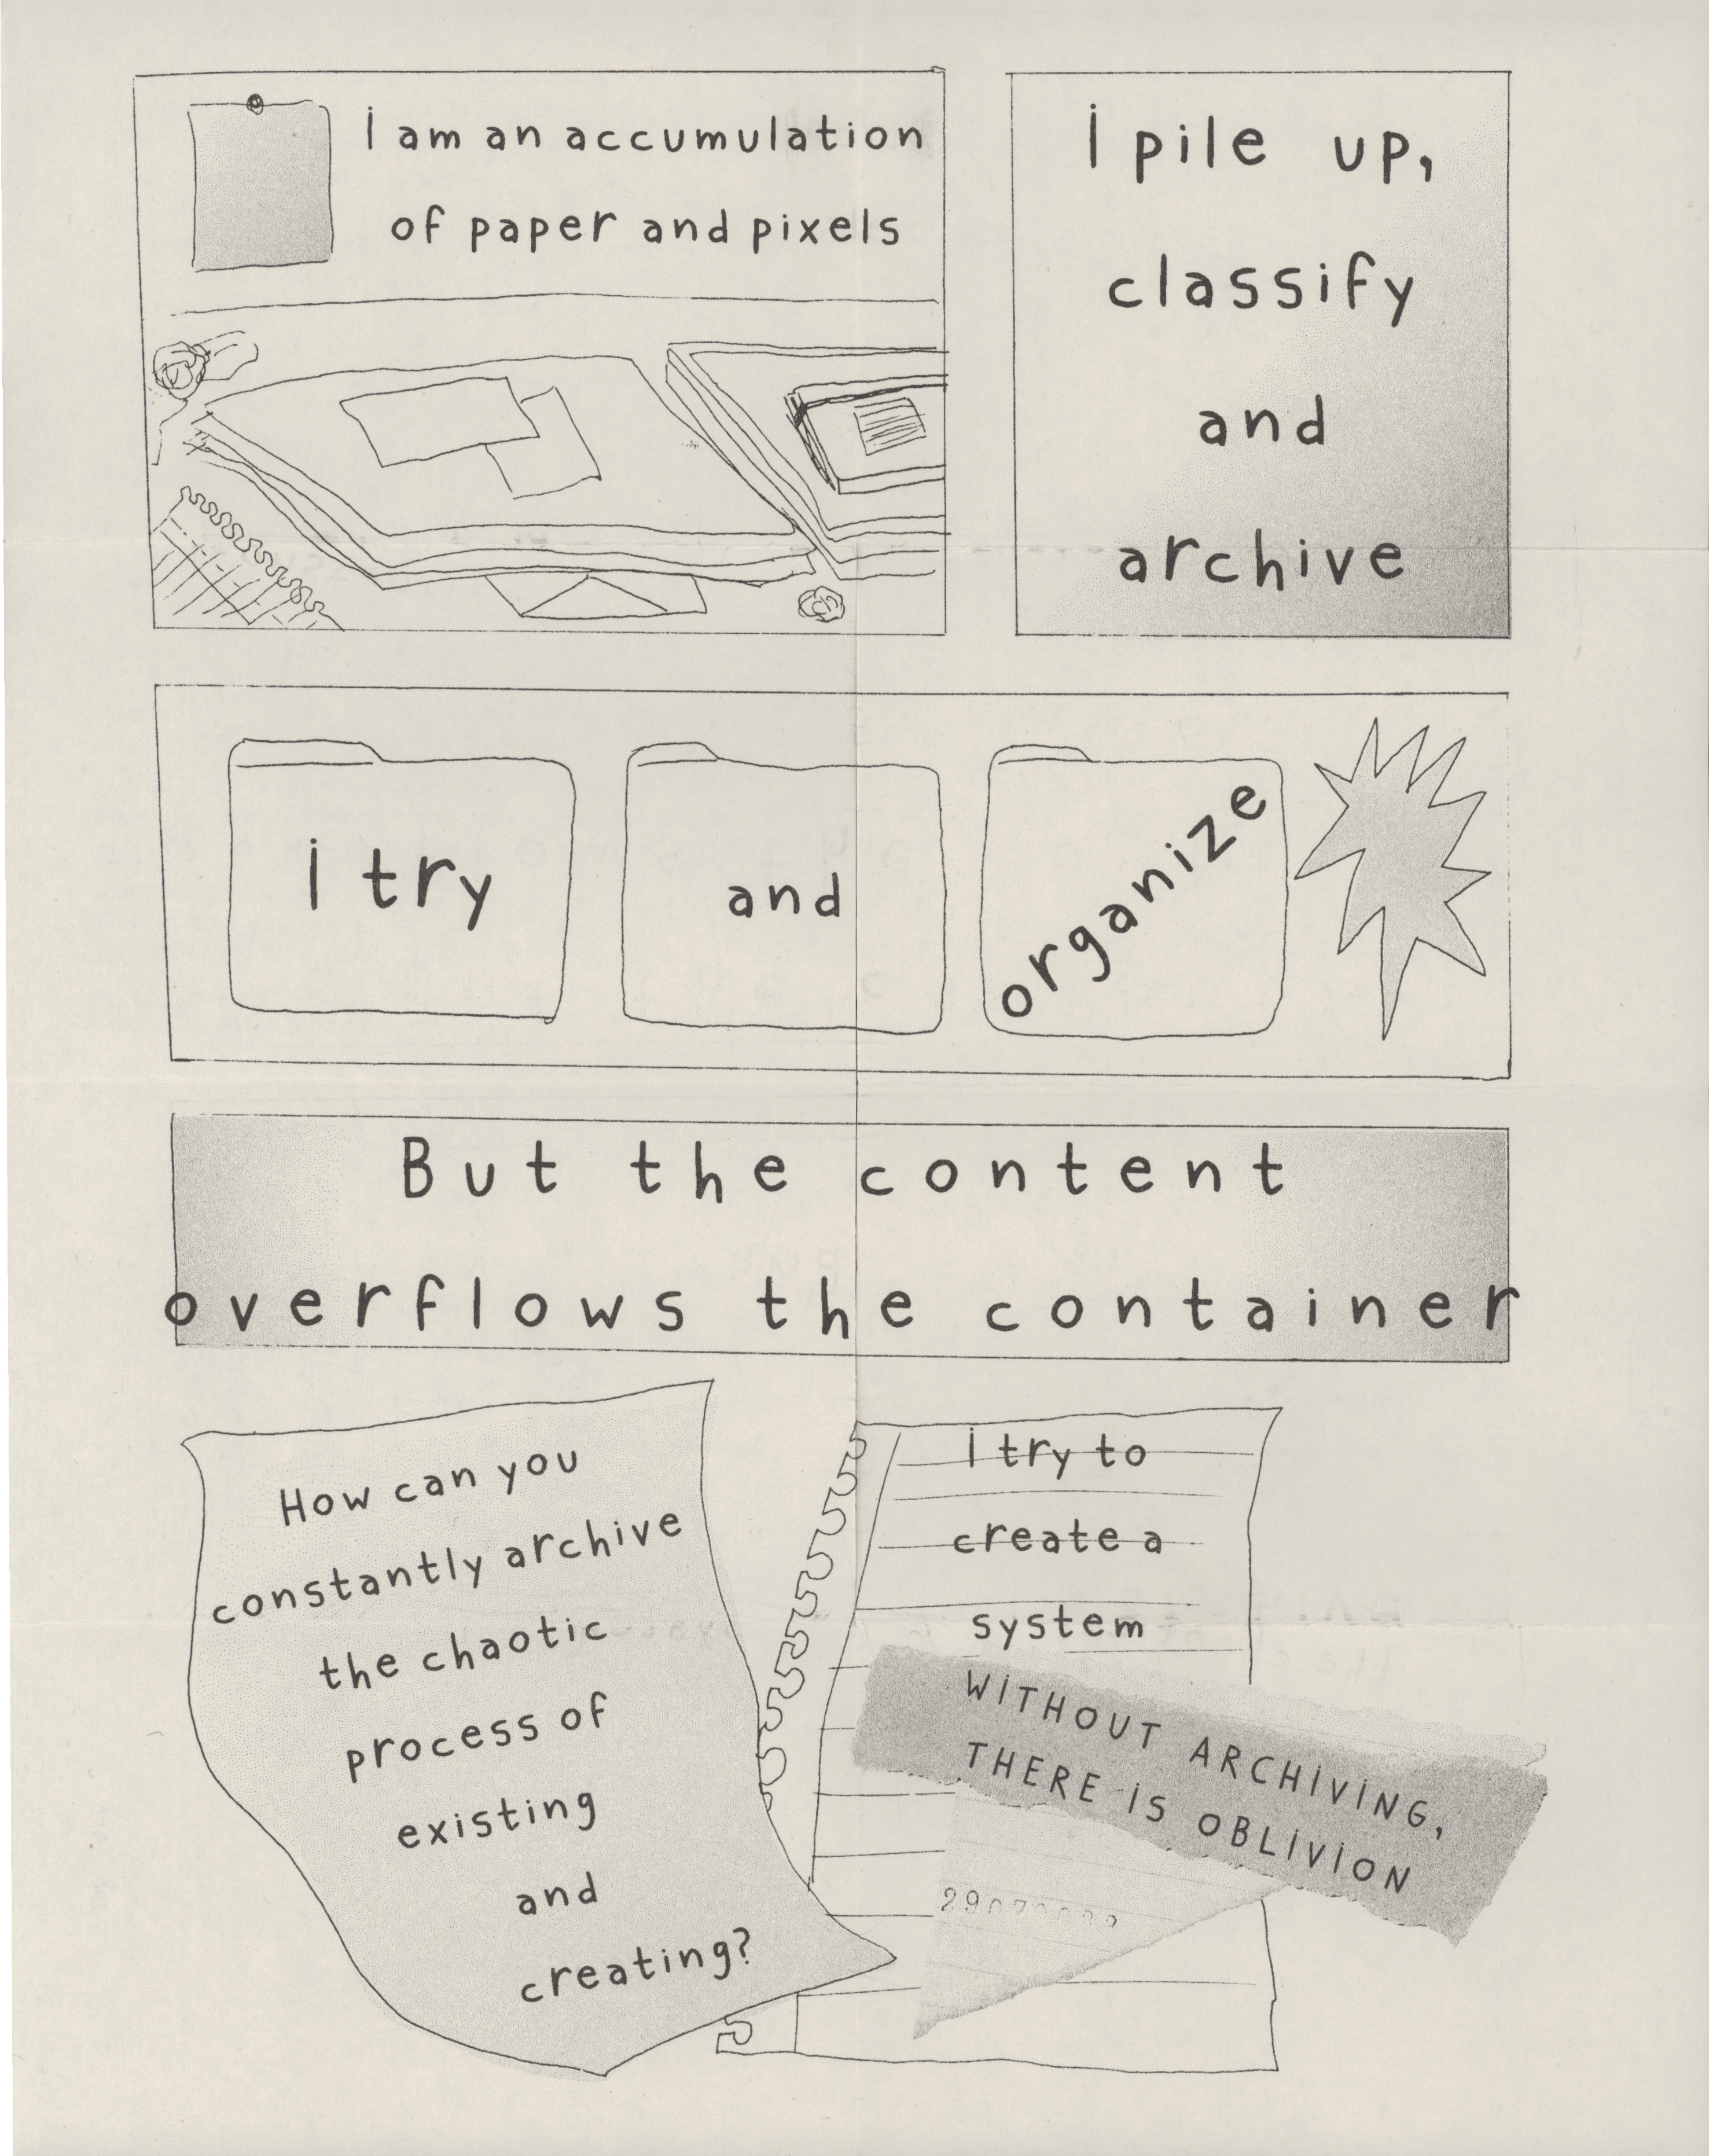 I am an accumulation
of paper and pixels
I pile up,
classify
and
archive
I try
and
organize
But the content
overflows the container
How can you
constantly archive
the chaotic
process of
existing
and
creating?
I try to
create a
system
WITHOUT ARCHIVING,
THERE IS OBLIVION